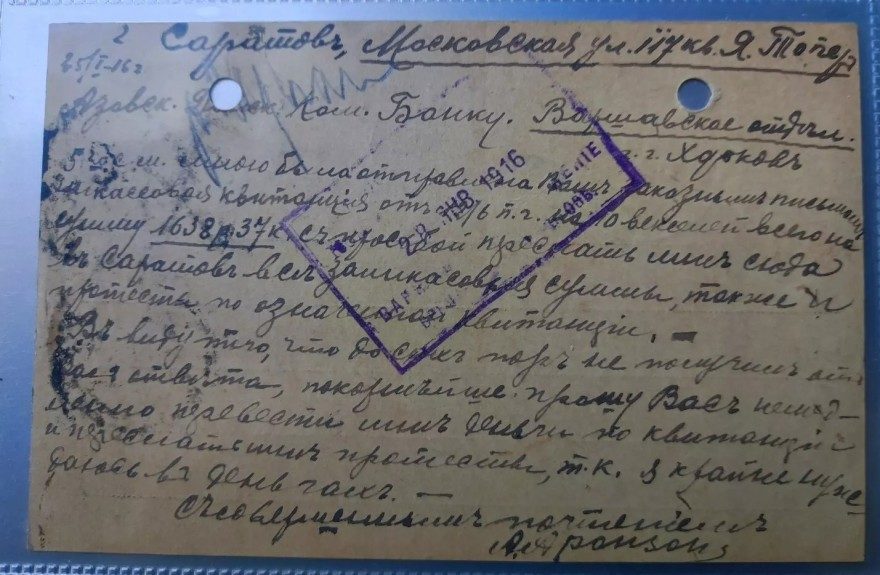 2
Саратовъ, Московская ул. 117 кв. Я. Топер
25/I-16 г
Азовск. Донск. Ком. Банку. Варшавское отдѣл.
г. Харьковъ
5 сего м. мною была отправлена Вамъ заказнымъ письмомъ
инкассовая квитанція отъ п.г. на векселей всего на
сумму 1638 р 37 к, съ просьбой переслать мнѣ сюда
въ Саратовъ всѣ заинкасованыя суммы, также и
протесты по означенной квитанціи. —
Въ виду того, что до сихъ поръ не получилъ отъ
Васъ отвѣта, покорнѣйше прошу Васъ немед-
ленно перевести мнѣ деньги по квитанціи
и переслать мнѣ протесты, т.к. я крайне нуж-
даюсь въ деньгахъ. —
Съ совершеннымъ почтеніемъ
Аронзонъ
29 ЯНВ 1916